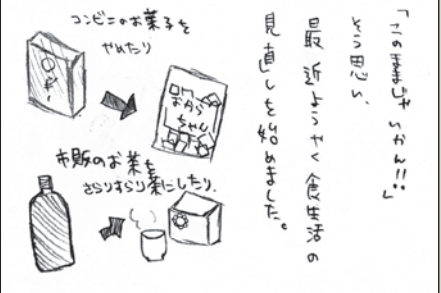 「このままじゃいかん!!」
そう思い、
最近ようやく食生活の
見直しを始めました。
コンビニのお菓子を
やめたり
おから
ちゃん
市販のお茶を
さらりすらり茶にしたり、